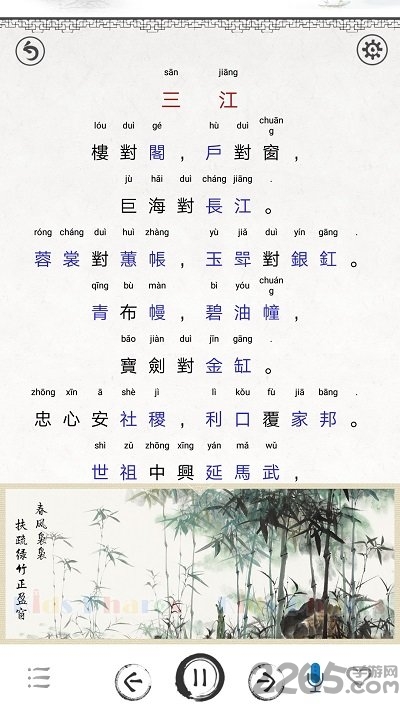 sān jiāng
三 江
lóu duì gé hù duì chuāng
樓對閣，戶對窗，
jù hǎi duì cháng jiāng .
巨海對長江。
róng cháng duì huì zhàng yù jiǎ duì yín gāng .
蓉裳對蕙帳，玉斝對銀釭。
qīng bù màn bì yóu chuáng
青布幔，碧油幢，
bǎo jiàn duì jīn gāng .
寶劍對金缸。
zhōng xīn ā shè jì lì kǒu fù jiā bāng .
忠心安社稷，利口覆家邦。
shì zǔ zhōng xīng yán mǎ wǔ
世祖中興延馬武，
春風裊裊
扶疏緑竹正盈窗
2265.com